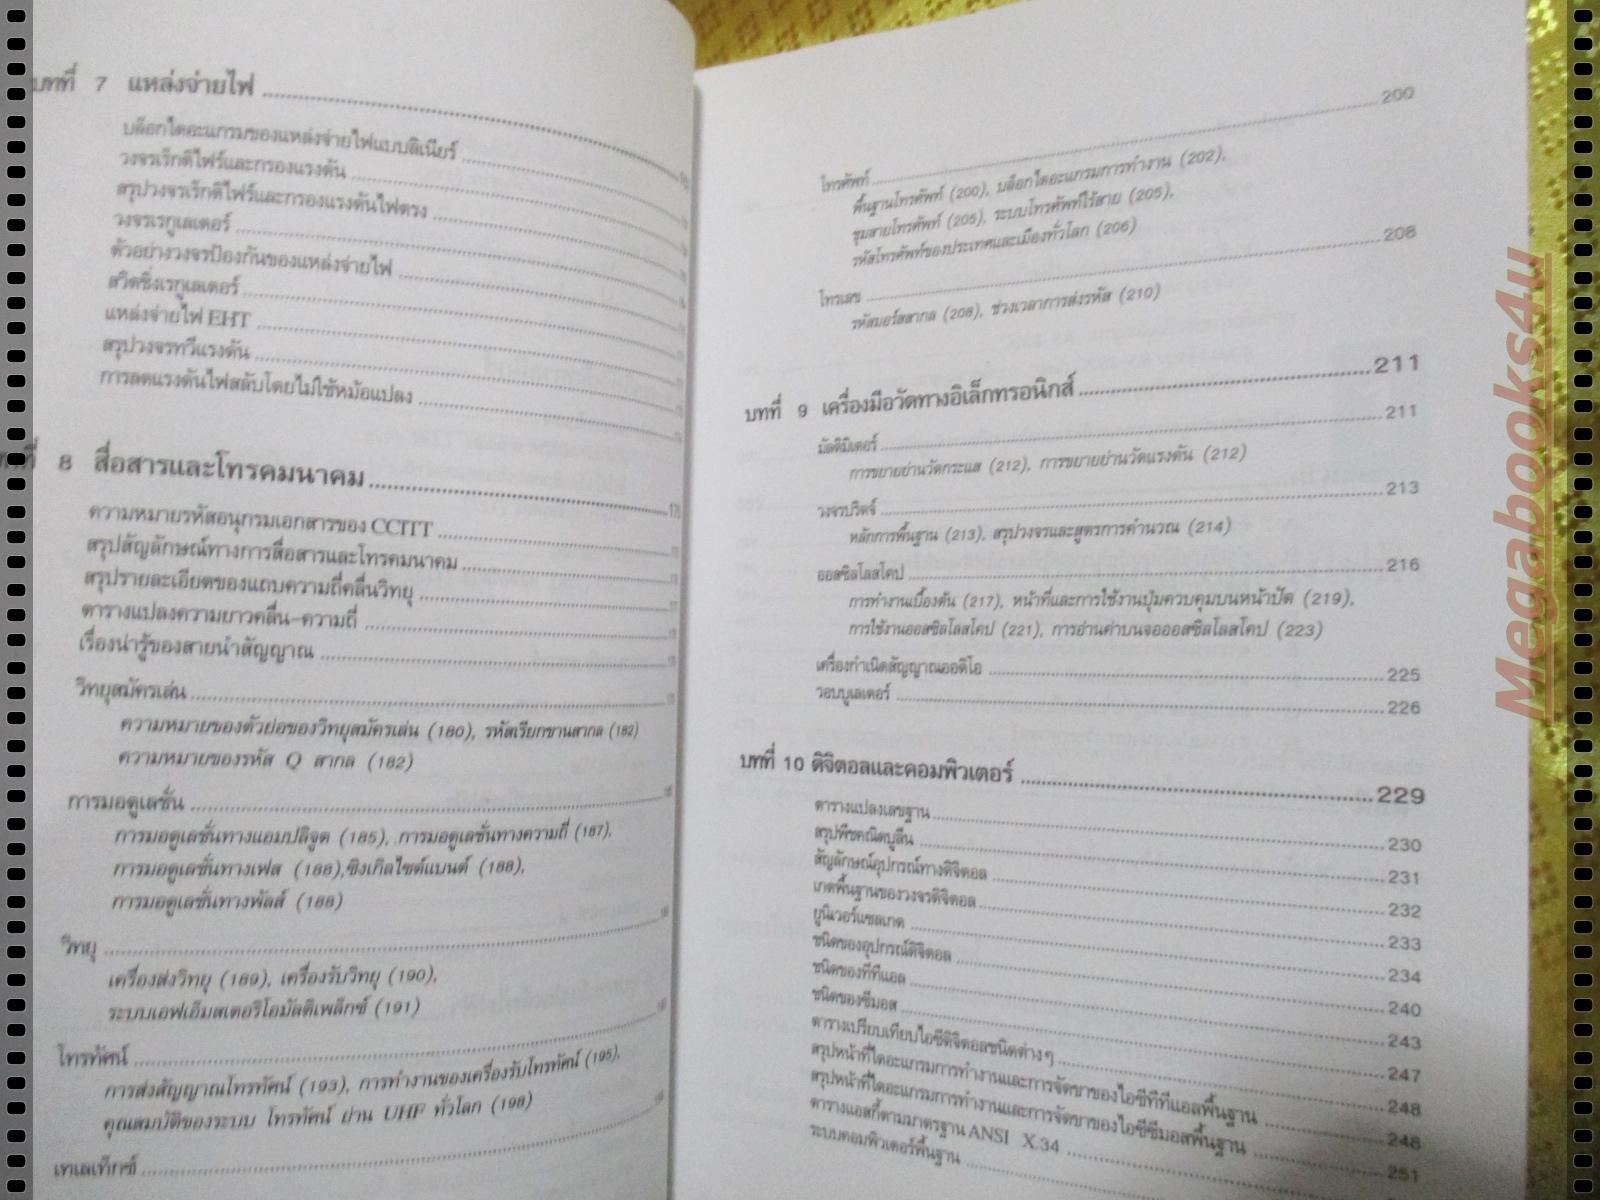 บทที่ 7 แหล่งจ่ายไฟ
บล็อกไดอะแกรมของแหล่งจ่ายไฟแบบลิเนียร์
วงจรเร็กติไฟร์และกรองแรงดัน
สรุปวงจรเร็กติไฟร์และกรองแรงดันไฟตรง
วงจรเรกูเลเตอร์
ตัวอย่างวงจรป้องกันของแหล่งจ่ายไฟ
สวิตชิ่งเรกูเลเตอร์
แหล่งจ่ายไฟ EHT
สรุปวงจรทวีแรงดัน
การลดแรงดันไฟสลับโดยไม่ใช้หม้อแปลง
8 สื่อสารและโทรคมนาคม
ความหมายรหัสอนุกรมเอกสารของ CCITT
สรุปสัญลักษณ์ทางการสื่อสารและโทรคมนาคม
สรุปรายละเอียดของแถบความถี่คลื่นวิทยุ
ตารางแปลงความยาวคลื่น-ความถี่
เรื่องน่ารู้ของสายนำสัญญาณ
วิทยุสมัครเล่น
ความหมายของตัวย่อของวิทยุสมัครเล่น (180), รหัสเรียกขานสากล (182)
ความหมายของรหัส Q สากล (182)
การมอดูเลชั่น
การมอดูเลชั่นทางแอมปลิจูด (185), การมอดูเลชั่นทางความถี่ (187),
การมอดูเลชั่นทางเฟส (188),ซิงเกิลไซด์แบนด์ (188),
การมอดูเลชั่นทางพัลส์ (188)
วิทยุ
เครื่องส่งวิทยุ (189), เครื่องรับวิทยุ (190),
ระบบเอฟเอ็มสเตอริโอมัลติเพล็กซ์ (191)
โทรทัศน์
การส่งสัญญาณโทรทัศน์ (193), การทำงานของเครื่องรับโทรทัศน์ (195),
คุณสมบัติของระบบ โทรทัศน์ ย่าน UHF ทั่วโลก (198)
เทเลเท็กซ์
โทรศัพท์ 200
พื้นฐานโทรศัพท์ (200), บล็อกไดอะแกรมการทำงาน (202),
ชุมสายโทรศัพท์ (205), ระบบโทรศัพท์ไร้สาย (205),
รหัสโทรศัพท์ของประเทศและเมืองทั่วโลก (206)
โทรเลข 208
รหัสมอร์สสากล (208), ช่วงเวลาการส่งรหัส (210)
บทที่ 9 เครื่องมือวัดทางอิเล็กทรอนิกส์ 211
มัลติมิเตอร์ 211
การขยายย่านวัดกระแส (212), การขยายย่านวัดแรงดัน (212)
วงจรบริดจ์ 213
หลักการพื้นฐาน (213), สรุปวงจรและสูตรการคำนวณ (214)
ออสซิลโลสโคป 216
การทำงานเบื้องต้น (217), หน้าที่และการใช้งานปุ่มควบคุมบนหน้าปัด (219),
การใช้งานออสซิลโลสโคป (221), การอ่านค่าบนจอออสซิลโลสโคป (223)
เครื่องกำเนิดสัญญาณออดิโอ 225
วอบบูเลเตอร์ 226
บทที่ 10 ดิจิตอลและคอมพิวเตอร์ 229
ตารางแปลงเลขฐาน 230
สรุปพีชคณิตบูลีน 231
สัญลักษณ์อุปกรณ์ทางดิจิตอล 232
เกตพื้นฐานของวงจรดิจิตอล 233
ยูนิเวอร์แซลเกต 234
ชนิดของอุปกรณ์ดิจิตอล 240
ชนิดของทีทีแอล 243
ชนิดของซีมอส 247
ตารางเปรียบเทียบไอซีดิจิตอลชนิดต่างๆ 248
สรุปหน้าที่ไดอะแกรมการทำงานและการจัดขาของไอซีทีทีแอลพื้นฐาน 248
สรุปหน้าที่ไดอะแกรมการทำงานและการจัดขาของไอซีซีมอสพื้นฐาน 251
ตารางแอสกี้ตามมาตรฐาน ANSI X.34
ระบบคอมพิวเตอร์พื้นฐาน
Megabooks4u